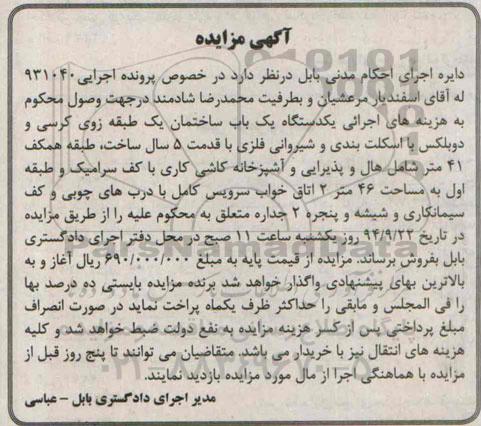 آگهی مزایده
دایره اجرای احکام مدنی بابل درنظر دارد در خصوص پرونده اجرایی ۹۳۱۰۴۰
له آقای اسفندیار مرعشیان و بطرفیت محمدرضا شادمند درجهت وصول محکوم
به هزینه های اجرائی یکدستگاه یک باب ساختمان یک طبقه زوی کرسی و
دوبلکس با اسکلت بندی و شیروانی فلزی با قدمت ۵ سال ساخت، طبقه همکف
۴۱ متر شامل هال و پذیرایی و آشپزخانه کاشی کاری با کف سرامیک و طبقه
اول به مساحت ۴۶ متر ۲ اتاق خواب سرویس کامل با درب های چوبی و کف
سیمانکاری و شیشه و پنجره ۲ جداره متعلق به محکوم علیه را از طریق مزایده
در تاریخ ۹۴/۹/۲۲ روز یکشنبه ساعت ۱۱ صبح در محل دفتر اجرای دادگستری
بابل بفروش برساند. مزایده از قیمت پایه به مبلغ ۶۹۰/۰۰۰/۰۰۰ ریال آغاز و به
بالاترین بهای پیشنهادی واگذار خواهد شد برنده مزایده بایستی ده درصد بها
را فی المجلس و مابقی را حداکثر ظرف یکماه پراخت نماید در صورت انصراف
مبلغ پرداختی پس از کسر هزینه مزایده به نفع دولت ضبط خواهد شد و کلیه
هزینه های انتقال نیز با خریدار می باشد. متقاضیان می توانند تا پنج روز قبل از
مزایده با هماهنگی اجرا از مال مورد مزایده بازدید نمایند.
مدیر اجرای دادگستری بابل – عباسی